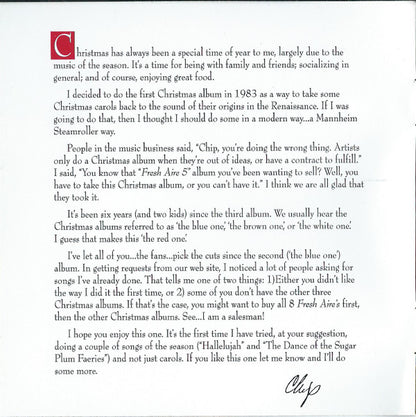 Christmas has always been a special time of year to me, largely due to the
music of the season. It's a time for being with family and friends; socializing in
general; and of course, enjoying great food.
I decided to do the first Christmas album in 1983 as a way to take some
Christmas carols back to the sound of their origins in the Renaissance. If I was
going to do that, then I thought I should do some in a modern way...a Mannheim
Steamroller way.
People in the music business said, "Chip, you're doing the wrong thing. Artists
only do a Christmas album when they're out of ideas, or have a contract to fulfill."
I said, "You know that "Fresh Aire 5" album you've been wanting to sell? Well, you
have to take this Christmas album, or you can't have it." I think we are all glad that
they took it.
It's been six years (and two kids) since the third album. We usually hear the
Christmas albums referred to as 'the blue one,' 'the brown one,' or 'the white one.'
I guess that makes this 'the red one.'
I've let all of you...the fans...pick the cuts since the second ('the blue one')
album. In getting requests from our web site, I noticed a lot of people asking for
songs I've already done. That tells me one of two things: 1)Either you didn't like
the way I did it the first time, or 2) some of you don't have the other three
Christmas albums. If that's the case, you might want to buy all 8 Fresh Aire's first,
then the other Christmas albums. See...I am a salesman!
I hope you enjoy this one. It's the first time I have tried, at your suggestion,
doing a couple of songs of the season ("Hallelujah" and "The Dance of the Sugar
Plum Faeries") and not just carols. If you like this one let me know and I'll do
some more.
Chip